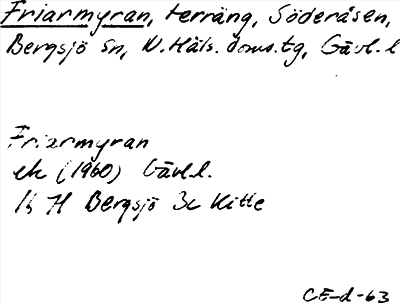 Friarmyran, terräng, Söderåsen,
Bergsjö sn, N. Häls. doms. tg, Gävl. l
Friarmyran
ek (1960) Gävl.l.
16 H Bergsjö 3c Kitte
CE-d-63